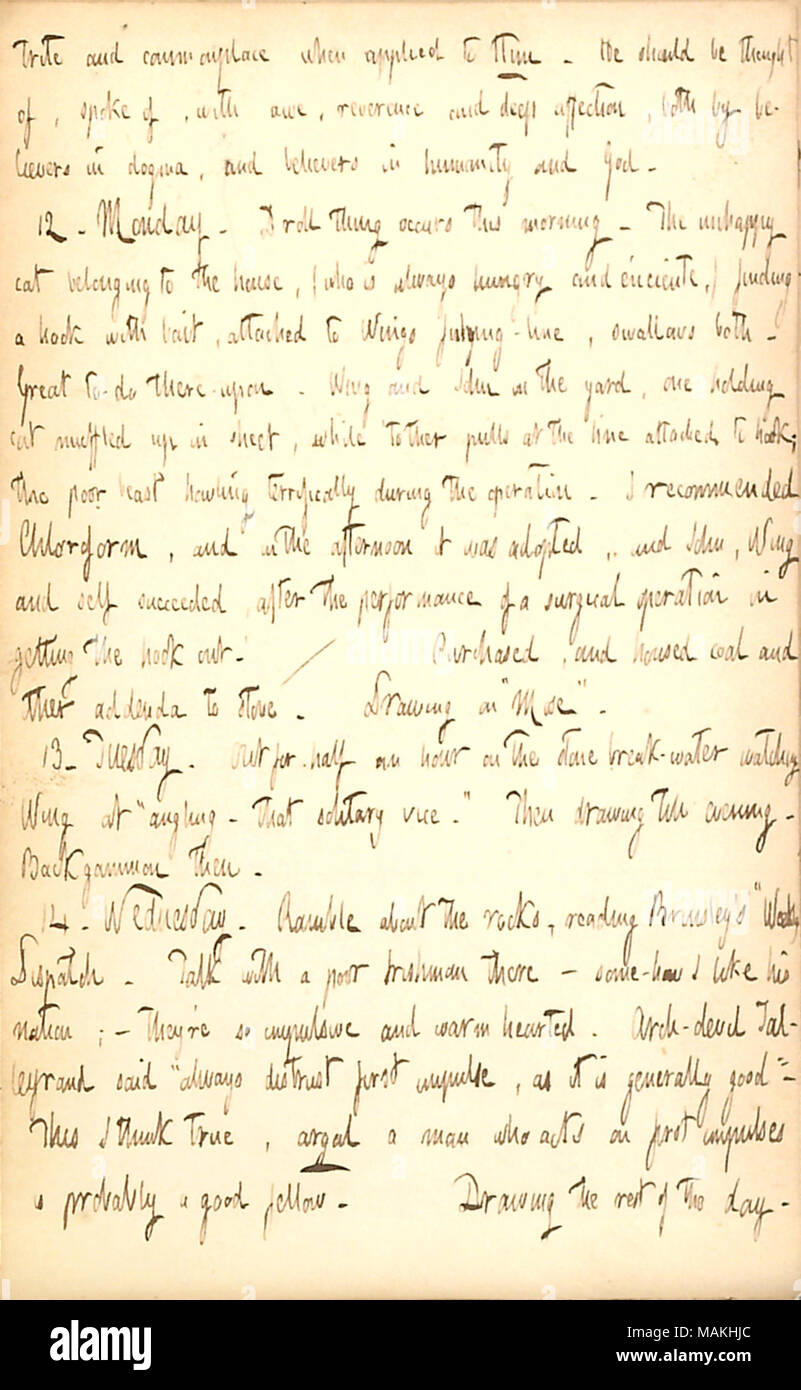 trite and commonplace when applied to Him. He should be thought
of, spoke of, with awe, reverence and deep affection, both by be-
lievers in dogma, and believers in humanity and God.
12. Monday. Droll thing occurs this morning. The unhappy
cat belonging to the house, (who is always hungry and enciente,) finding
a hook with bait, attached to Wings fishing-line, swallows both.
Great to-do there-upon. Wing and John in the yard, one holding
cat muffled up in sheet, while tother pulls at the line attached to hook;
the poor beast howling terrifically during the operation. I recommended
Chlorform, and in the afternoon it was adopted, and John, Wing
and self succeeded, after the performance of a surgical operation in
getting the hook out. / Purchased, and housed coal and
other addenda to stove. Drawing on "Mose".
13. Tuesday. Out for half an hour on the stone break-water watching
Wing at "angling - that solitary vice." Then drawing till evening.
Backgammon then.
14. Wednesday. Ramble about the rocks, reading Brinsley's "Weekly
Dispatch. Talk with a poor Irishman there - some-how I like his
nation; - they're so impulsive and warm hearted. Arch-devil Tal-
leyrand said "always distrust first impulse, as it is generally good" -
This I think true, argal a man who acts on first impulses
is probably a good fellow. Drawing the rest of the day.
alamy
Image ID: MAKHJC
www.alamy.com